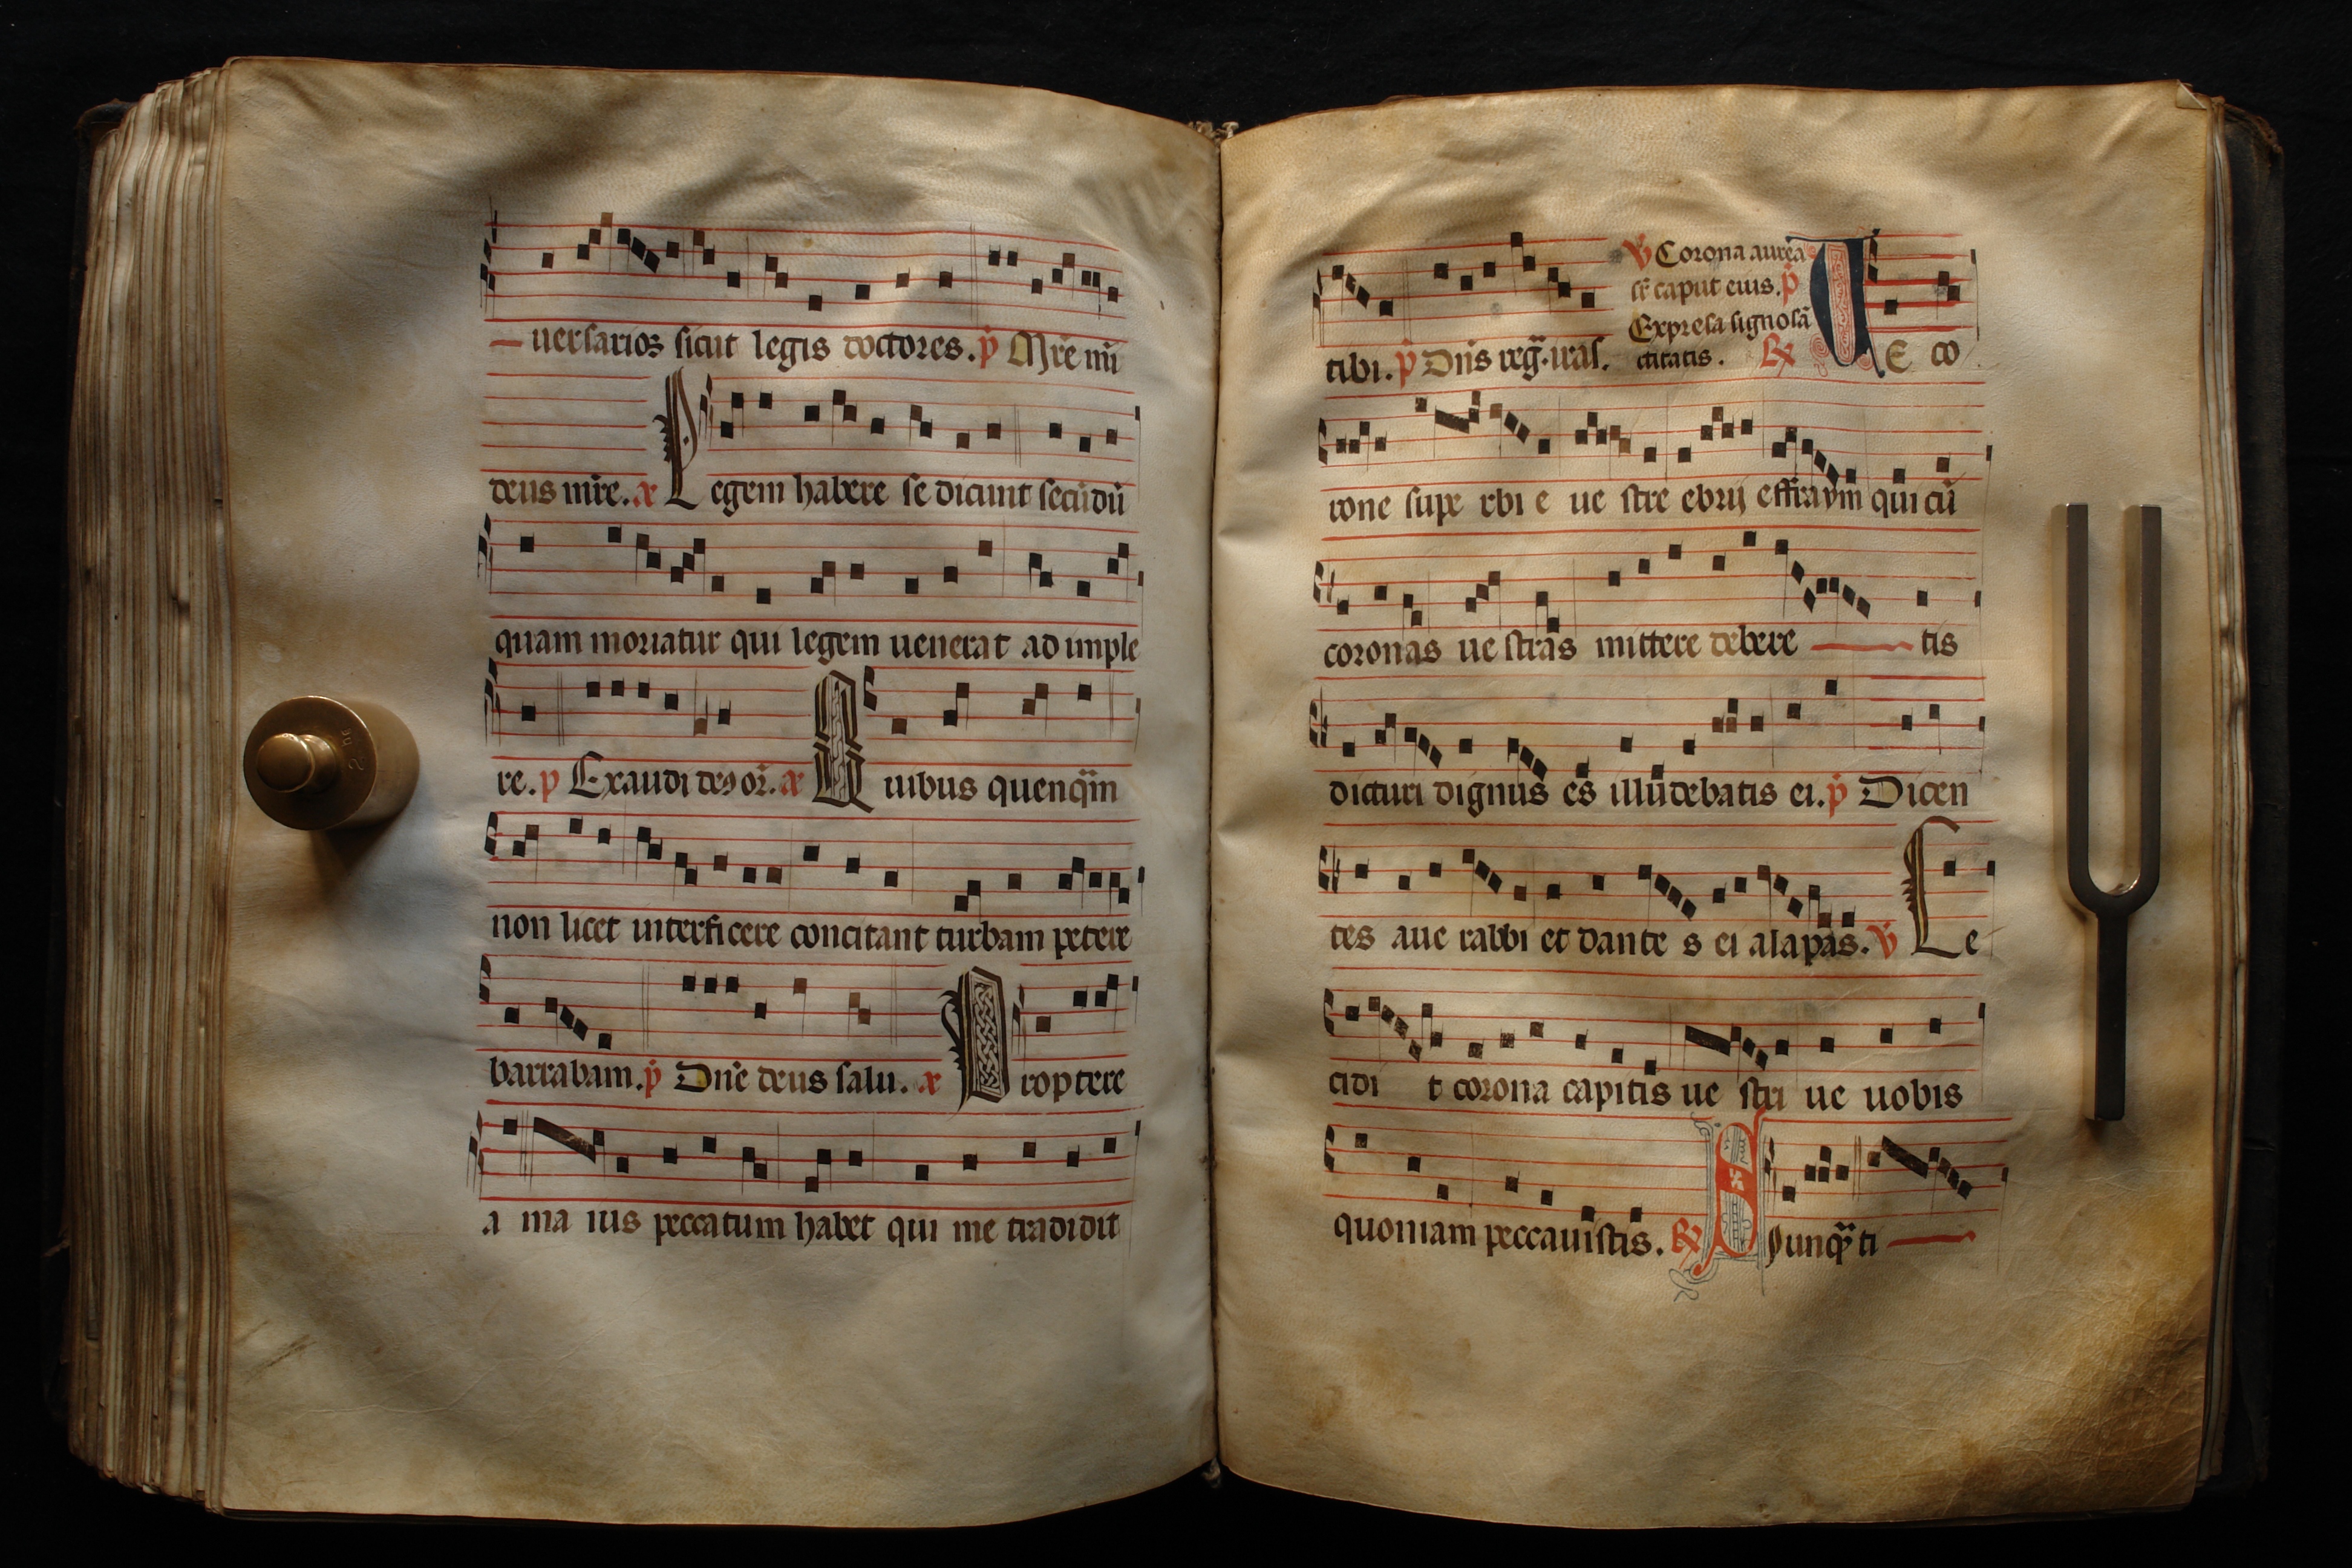 uersarioꝝ sicut legis doctores. p̄ Mr̄e mi
deus mr̄e. a Legem habere se dicunt secūdū
quam moriatur qui legem uenerat ad imple
re. p Exaudi des or̄. a Quibus quenq̄m
non licet interficere concitant turbam petere
barrabam. p̄ Dn̄e deus salu. a Proptere
a ma ius peccatum habet qui me tradidit
tibi. p̄ Dn̄s reḡ. iras.
℣ Corona aurea
caput eius. p̄
Expresa signo sā
ctitatis. ℟ Ue co
rone supe rbi e ue stre ebrij effraym qui cū
coronas ue stras mittere debere tis
dicturi dignus es illudebatis ei. p̄ Dicen
tes aue rabbi et dante s ei alapas. ℣ Le
cidi t corona capitis ue stri ue uobis
quoniam peccauistis. ℟ ti
2